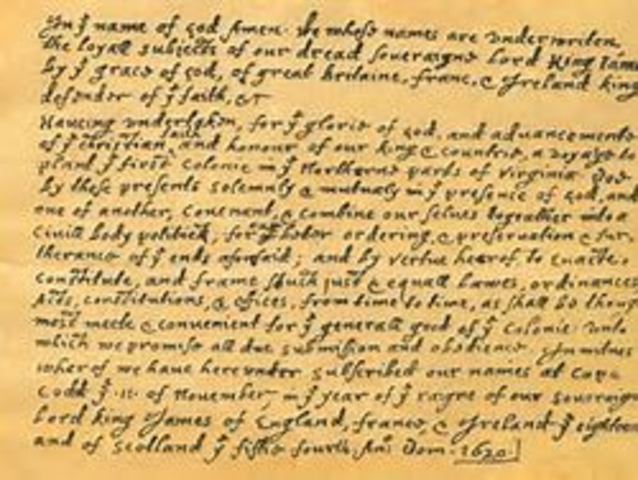 In ẏ name of god Amen· We whose names are underwriten,
the loyall subjects of our dread soveraigne Lord King Iame
by ẏ grace of god, of great britaine, franc, & Ireland king
defender of ẏ faith, &c
Haveing undertaken, for ẏ glorie of god, and advancemente
of ẏ christian faith and honour of our king & countrie, a voyage to
plant ẏ first colonie in ẏ Northerne parts of virginia· doe
by these presents solemnly & mutualy in ẏ presence of god, and
one of another, covenant, & combine our selves togeather into a
civill body politick, for better ordering, & preservation & fur-
therance of ẏ ends aforesaid; and by vertue hearof to enacte,
constitute, and frame such just & equall lawes, ordinances
Acts, constitutions, & offices, from time to time, as shall be thoug
most meete & convenient for ẏ generall good of ẏ Colonie: unto
which we promise all due submission and obedience. In witnes
wher of we have hereunder subscribed our names at Cape
Codd ẏ ·11· of November, in ẏ year of ẏ raigne of our soveraign
Lord king James of England, france, & Ireland ẏ eighteen
and of Scotland ẏ fiftie fourth. Ano: Dom·1620·